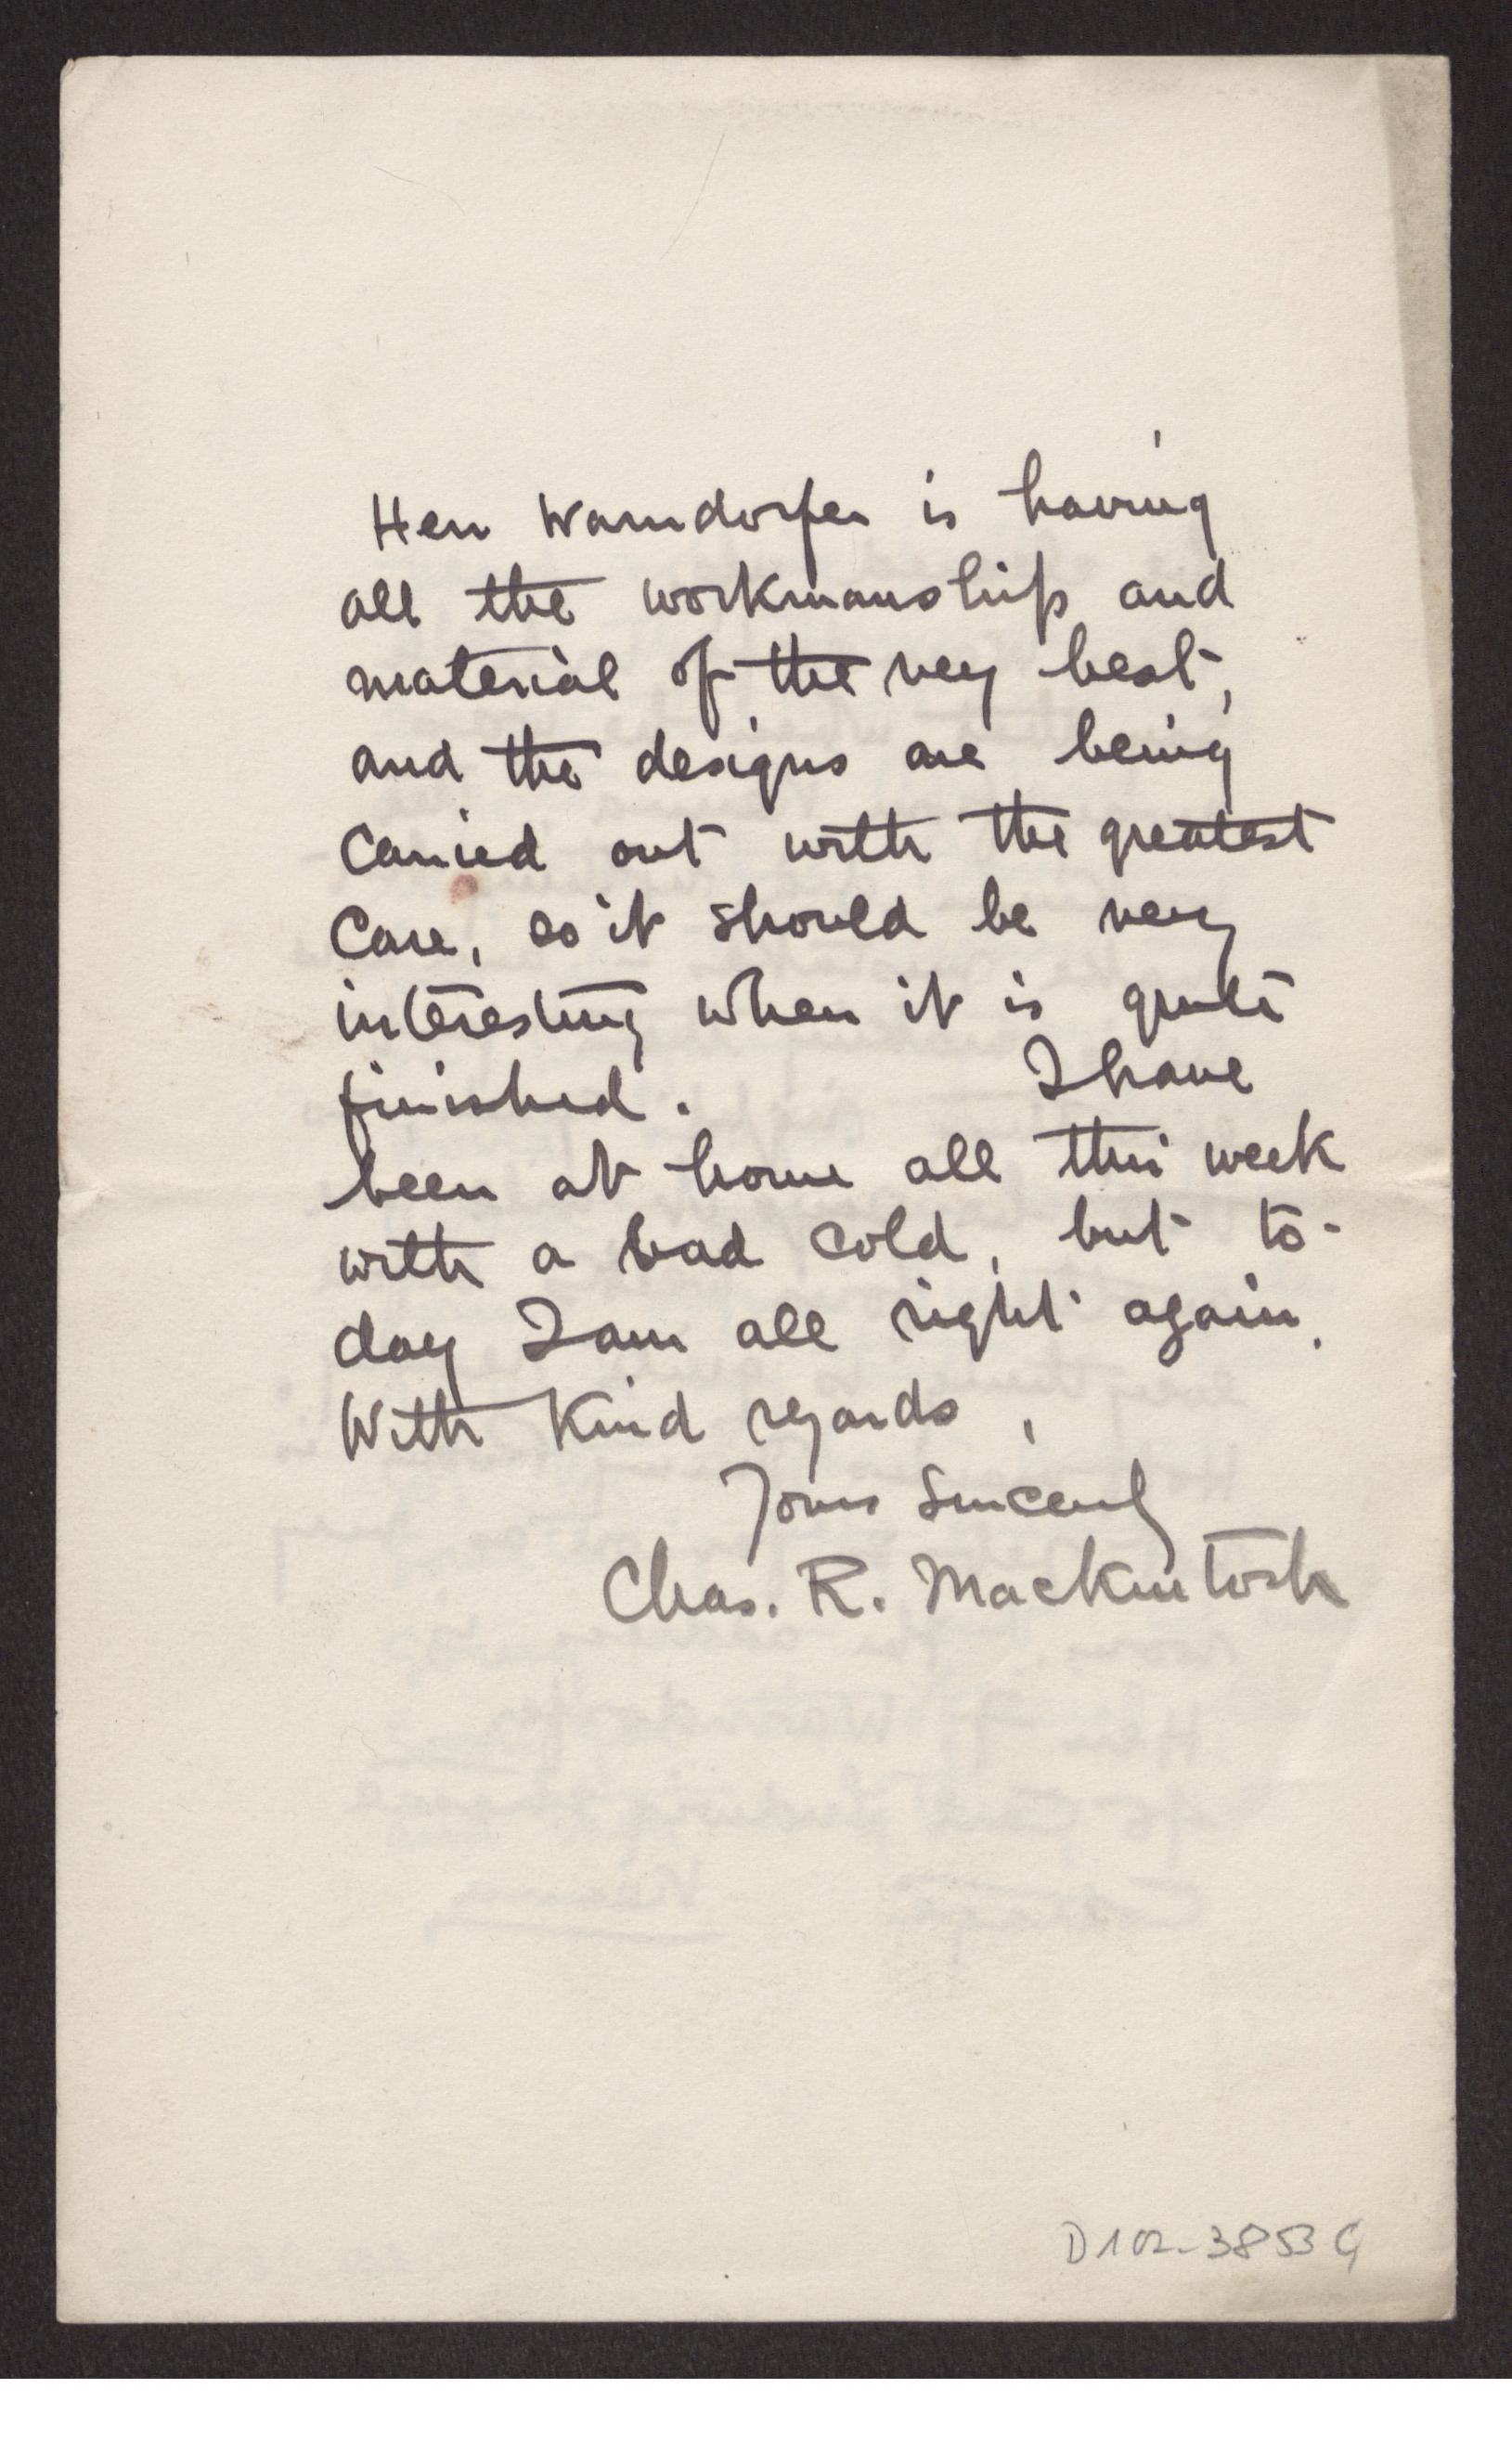 Herr Warndorfer is having
all the workmanship and
material of the very best,
and the designs are being
carried out with the greatest
care, so it should be very
interesting when it is quite
finished. I have
been at home all this week
with a bad cold, but to-
day I am all right again.
With kind regards,
Yours Sincerely
Chas. R. Mackintosh
D102-3853 G